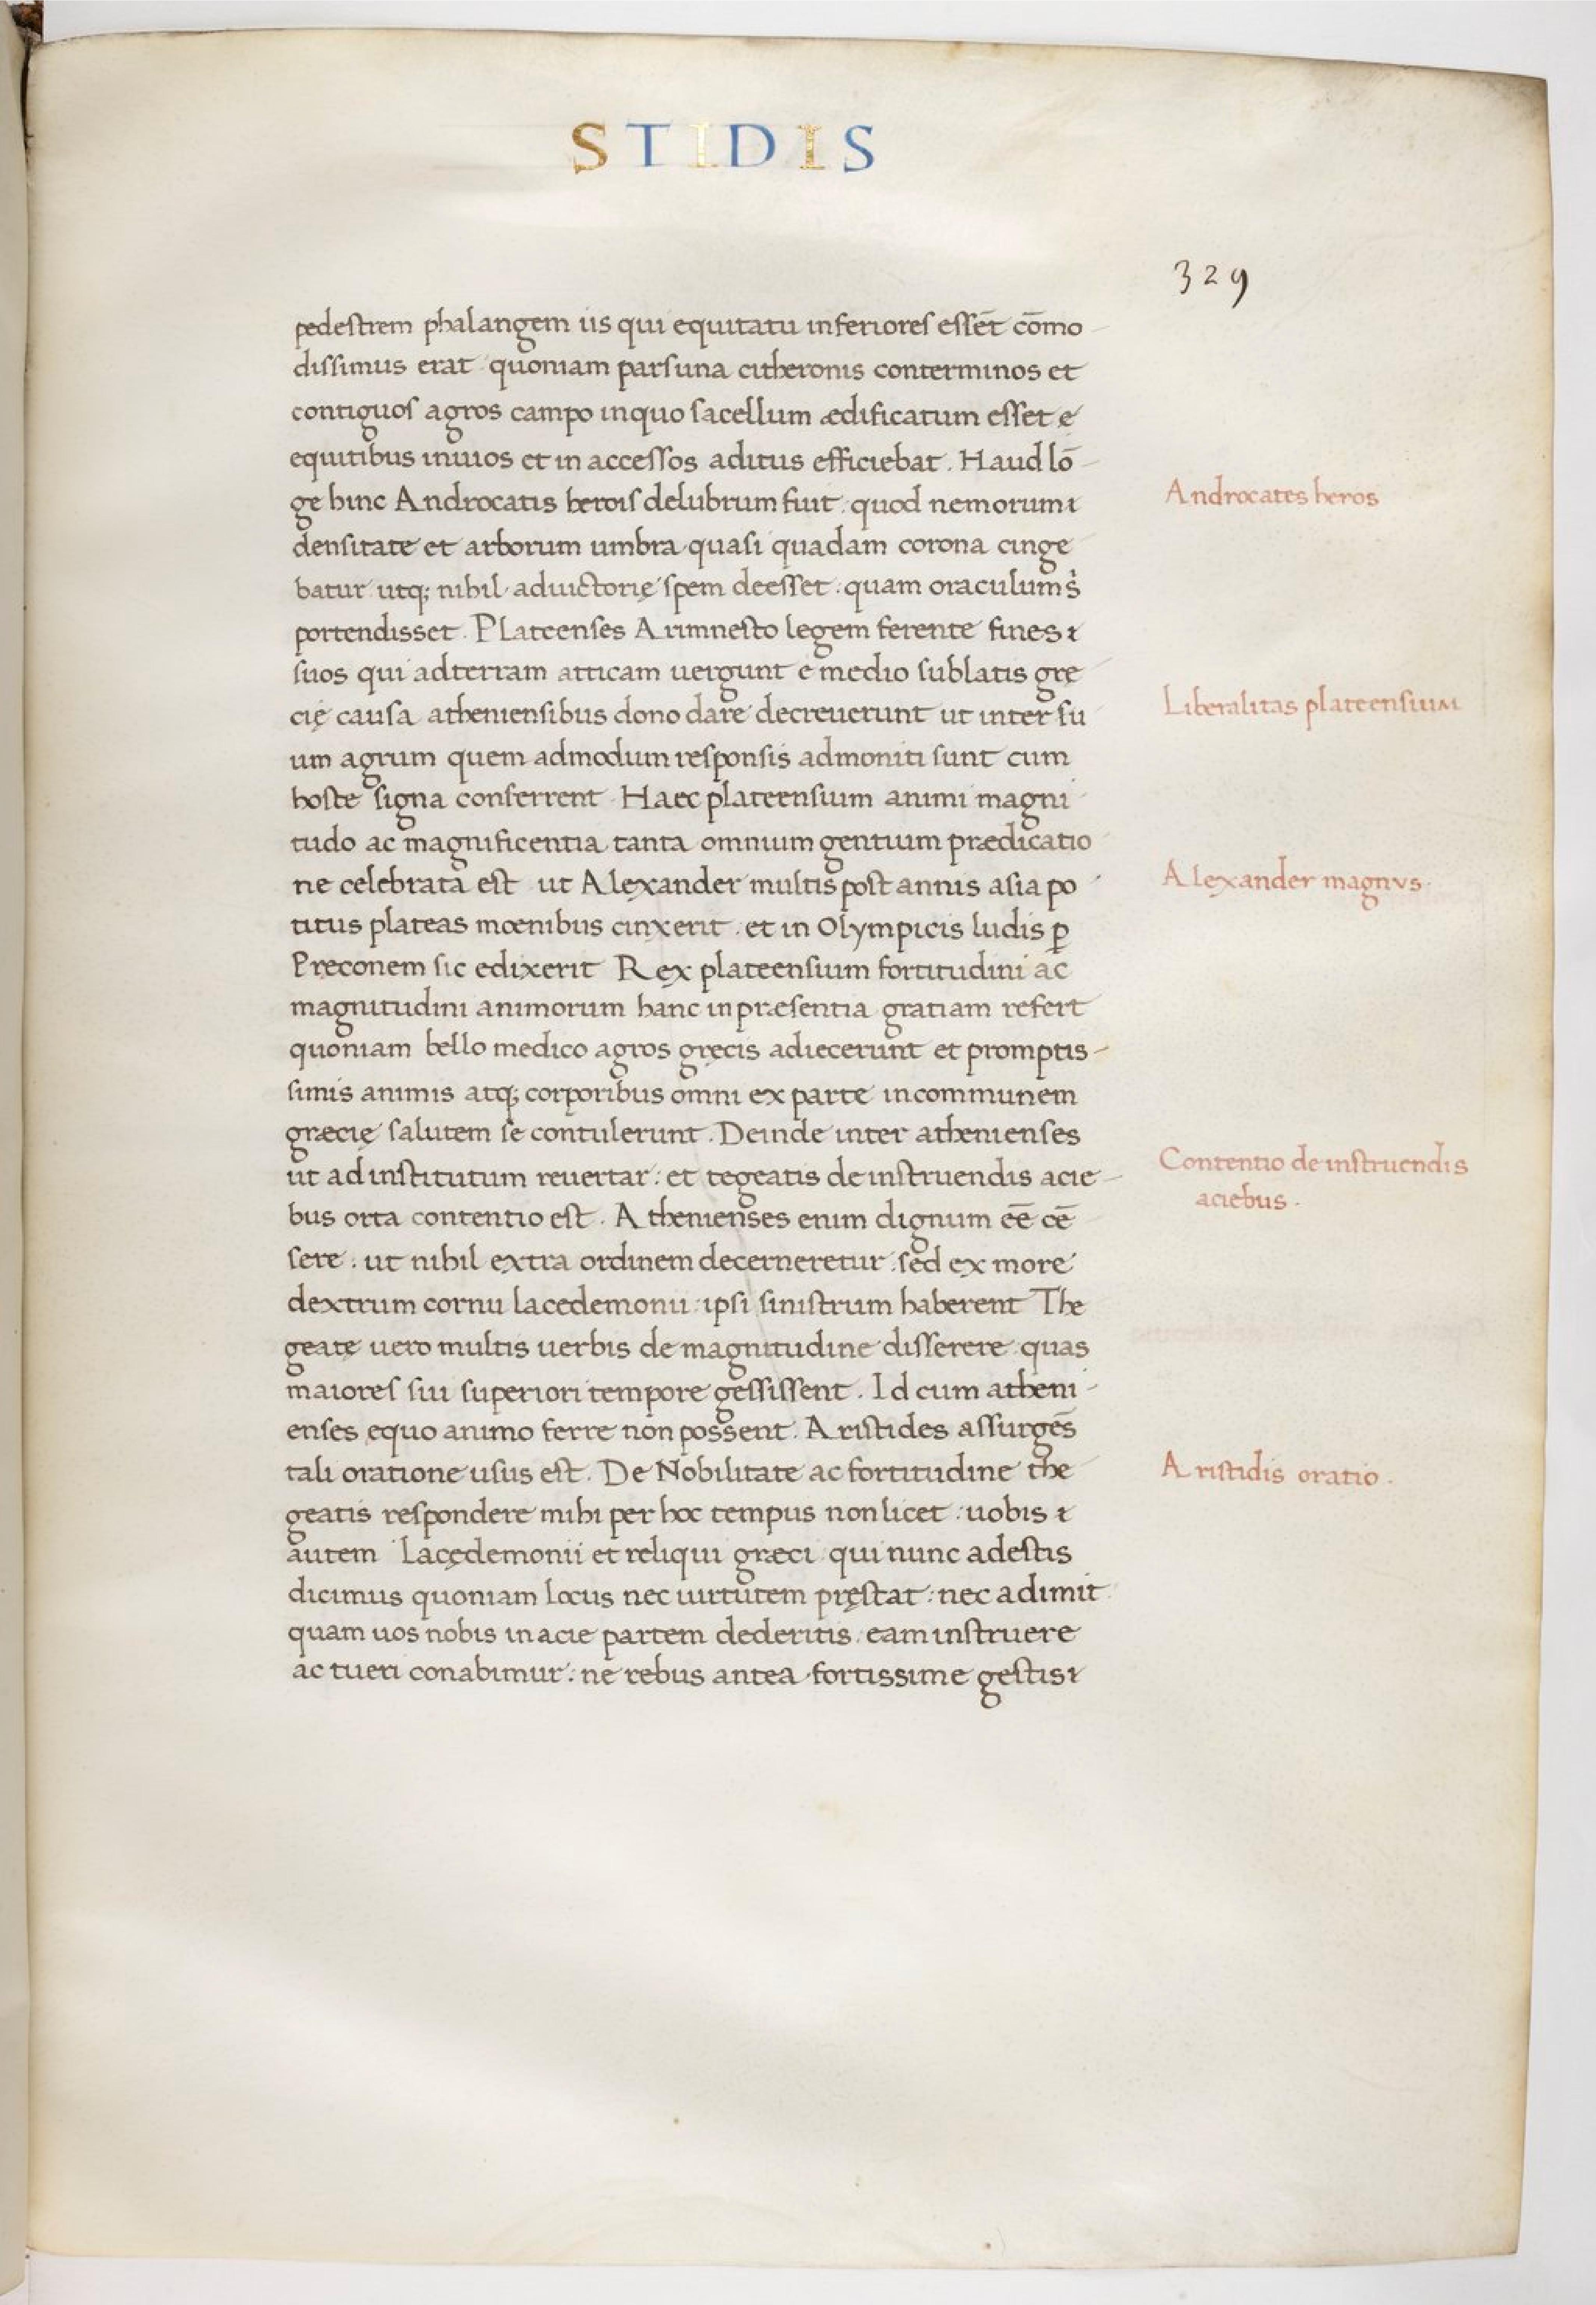 STIDIS
329
pedestrem phalangem iis qui equitatu inferiores essēt cōmo-
dissimus erat quoniam pars una citheronis conterminos et
contiguos agros campo in quo sacellum ædificatum esset e
equitibus inuios et in accessos aditus efficiebat. Haud lō-
ge hinc Androcatis herois delubrum fuit: quod nemorum
Androcates heros
densitate et arborum umbra quasi quadam corona cinge
batur utq; nihil ad uictorię spem deesset: quam oraculum
portendisset. Plateenses Arimnesto legem ferente fines
suos qui ad terram atticam uergunt e medio sublatis gre
Liberalitas plateensium
cię causa atheniensibus dono dare decreuerunt ut inter su
um agrum quem admodum responsis admoniti sunt cum
hoste signa conferrent. Haec plateensium animi magni
tudo ac magnificentia tanta omnium gentium prædicatio
ne celebrata est ut Alexander multis post annis asia po
Alexander magnvs.
titus plateas mœnibus cinxerit: et in Olympicis ludis ꝑ
Preconem sic edixerit Rex plateensium fortitudini ac
magnitudini animorum hanc in præsentia gratiam refert
quoniam bello medico agros gręcis adiecerunt et promptis-
simis animis atq; corporibus omni ex parte in communem
græcię salutem se contulerunt. Deinde inter athenienses
ut ad institutum reuertar: et tegeatis de instruendis acie-
Contentio de instruendis
aciebus.
bus orta contentio est. Athenienses enim dignum eē cē
sere: ut nihil extra ordinem decerneretur: sed ex more
dextrum cornu lacedemonii: ipsi sinistrum haberent The
geatę uero multis uerbis de magnitudine disserere quas
maiores sui superiori tempore gessissent. Id cum atheni-
enses equo animo ferre non possent. Aristides assurgēs
tali oratione usus est. De Nobilitate ac fortitudine the
Aristidis oratio.
geatis respondere mihi per hoc tempus non licet: uobis
autem Lacędemonii et reliqui græci qui nunc adestis
dicimus quoniam locus nec uirtutem pręstat: nec adimit
quam uos nobis in acie partem dederitis, eam instruere
ac tueri conabimur: ne rebus antea fortissime gestis